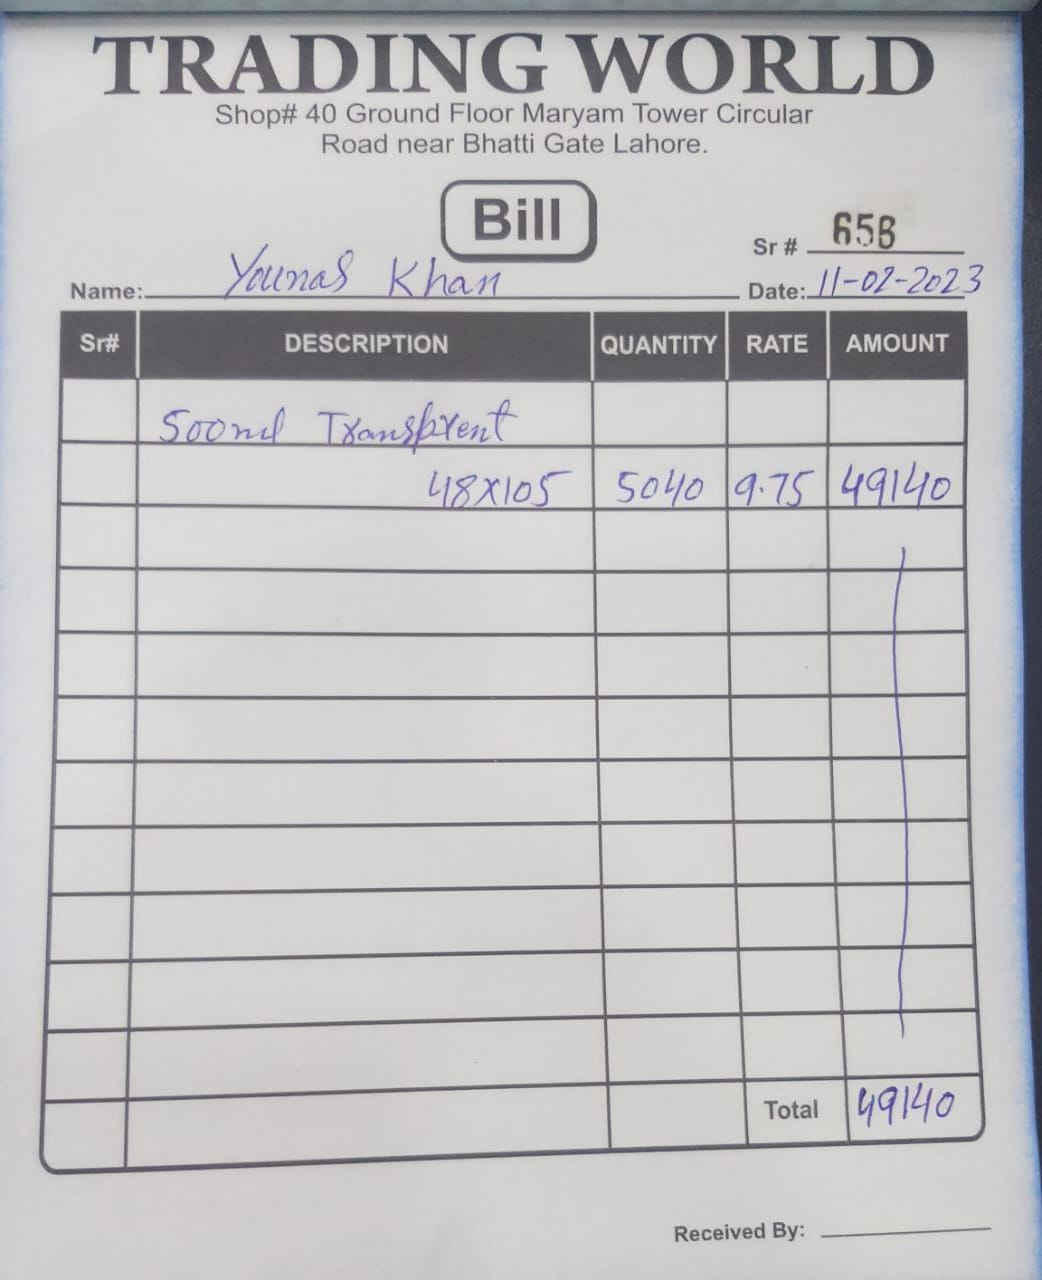 TRADING WORLD
Shop# 40 Ground Floor Maryam Tower Circular
Road near Bhatti Gate Lahore.
Bill
Sr # 656
Name: Younas Khan Date: 11-02-2023
Sr# DESCRIPTION QUANTITY RATE AMOUNT
500ml Transprent
48x105 5040 9.75 49140
Total 49140
Received By: